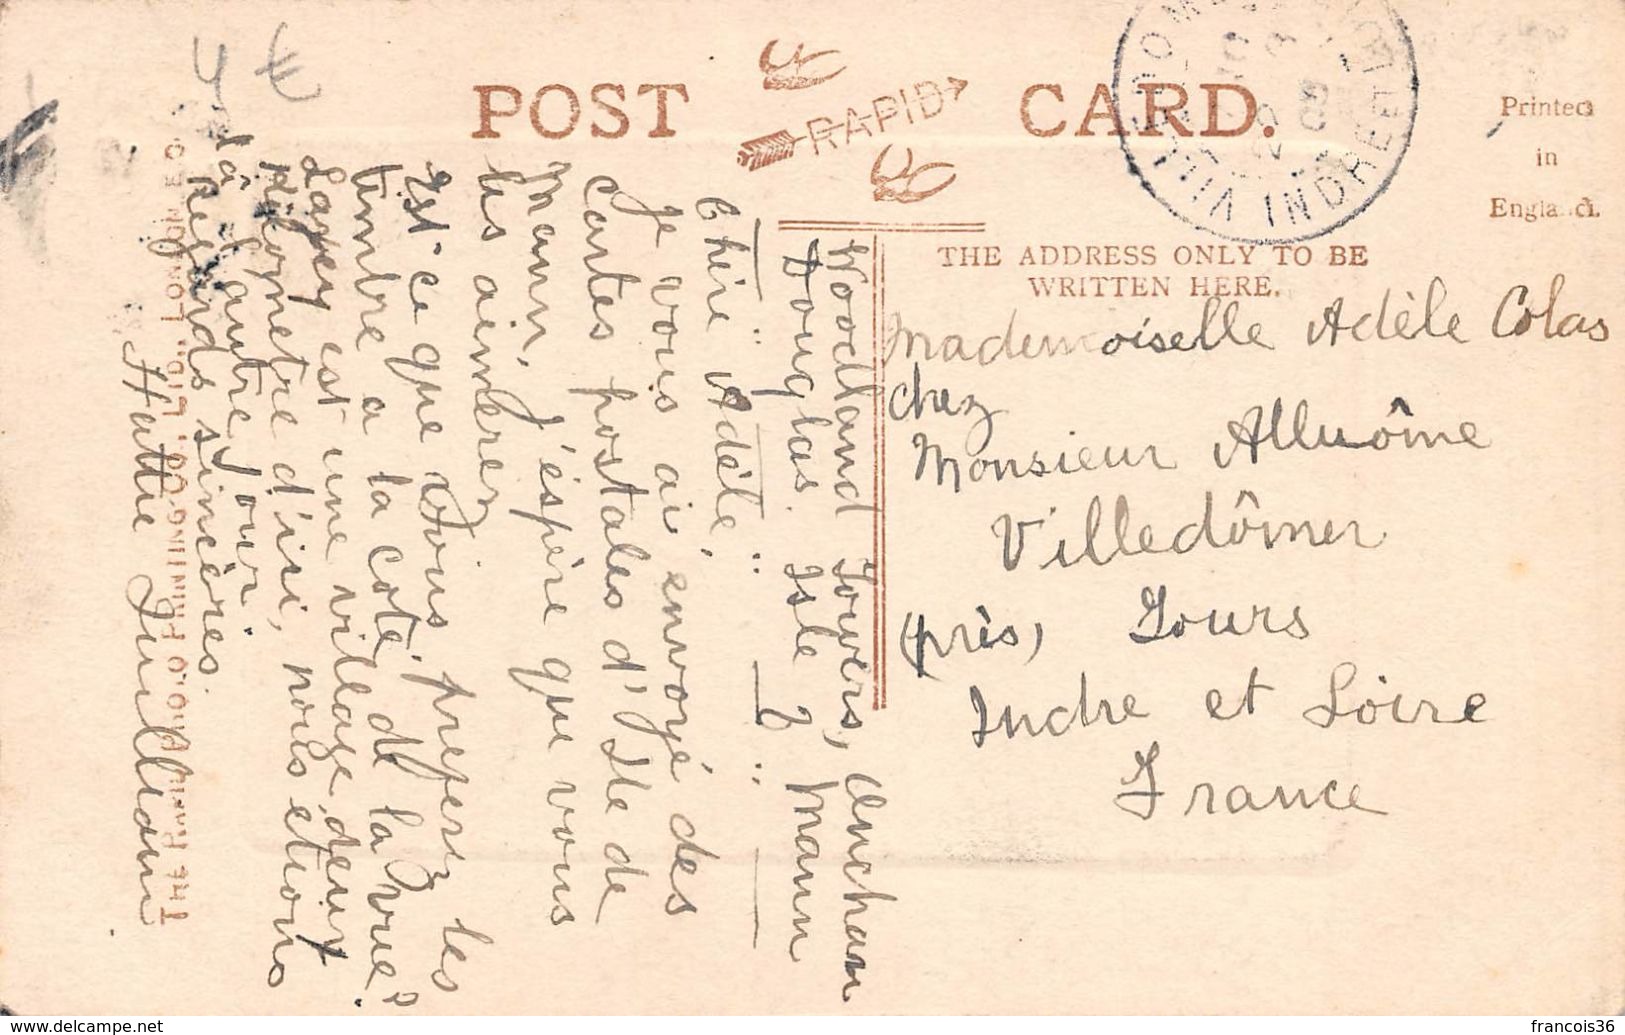 4 €
POST CARD.
RAPID
VILLEDOMER INDRE ET LOIRE
Printed
in
England.
THE ADDRESS ONLY TO BE
WRITTEN HERE.
Mademoiselle Adèle Colas
chez
Monsieur Alluôme
Villedômer
(près) Tours
Indre et Loire
France
Woodland Towers, Onchan
Douglas. Isle of Mann
Chère Adèle,
Je vous ai envoyé des
Cartes postales d'Ile de
Mann, J'éspère que vous
les aimerez
Est-ce que vous preferez les
timbre a la coté de la vue?
Laxey est une village deux
kilometre d'ici, nous etions
là l'autre jour.
Regards sincères.
Hattie
LONDON E.C.